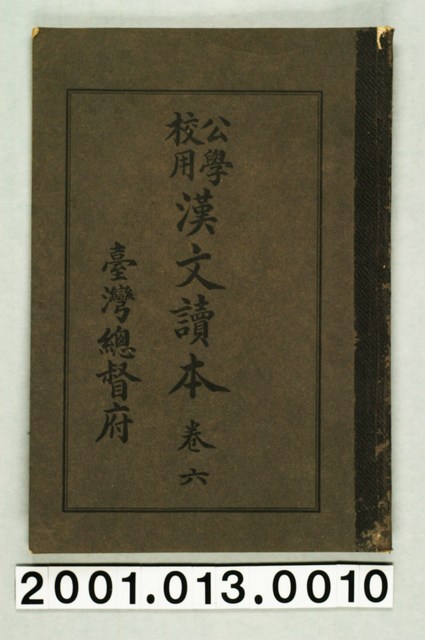 公學校用漢文讀本卷六
臺灣總督府
2001.013.0010